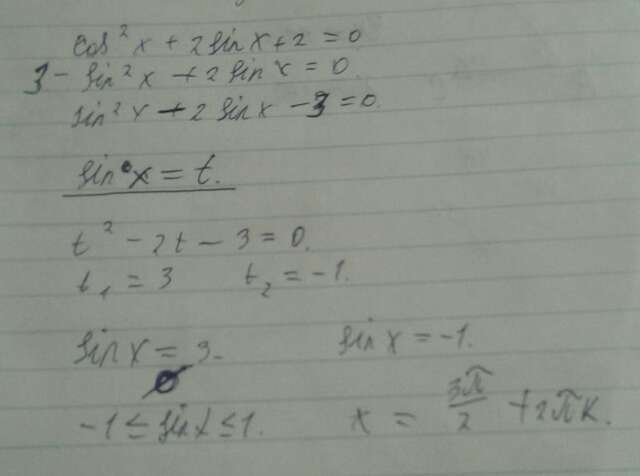 cos² x + 2 sin x + 2 = 0
3 - sin² x + 2 sin x = 0.
sin² x + 2 sin x - 3 = 0.
sin x = t.
t² - 2t - 3 = 0.
t₁ = 3 t₂ = -1.
sin x = 3. sin x = -1.
∅
-1 ≤ sin x ≤ 1. x = 3π/2 + 2πk.